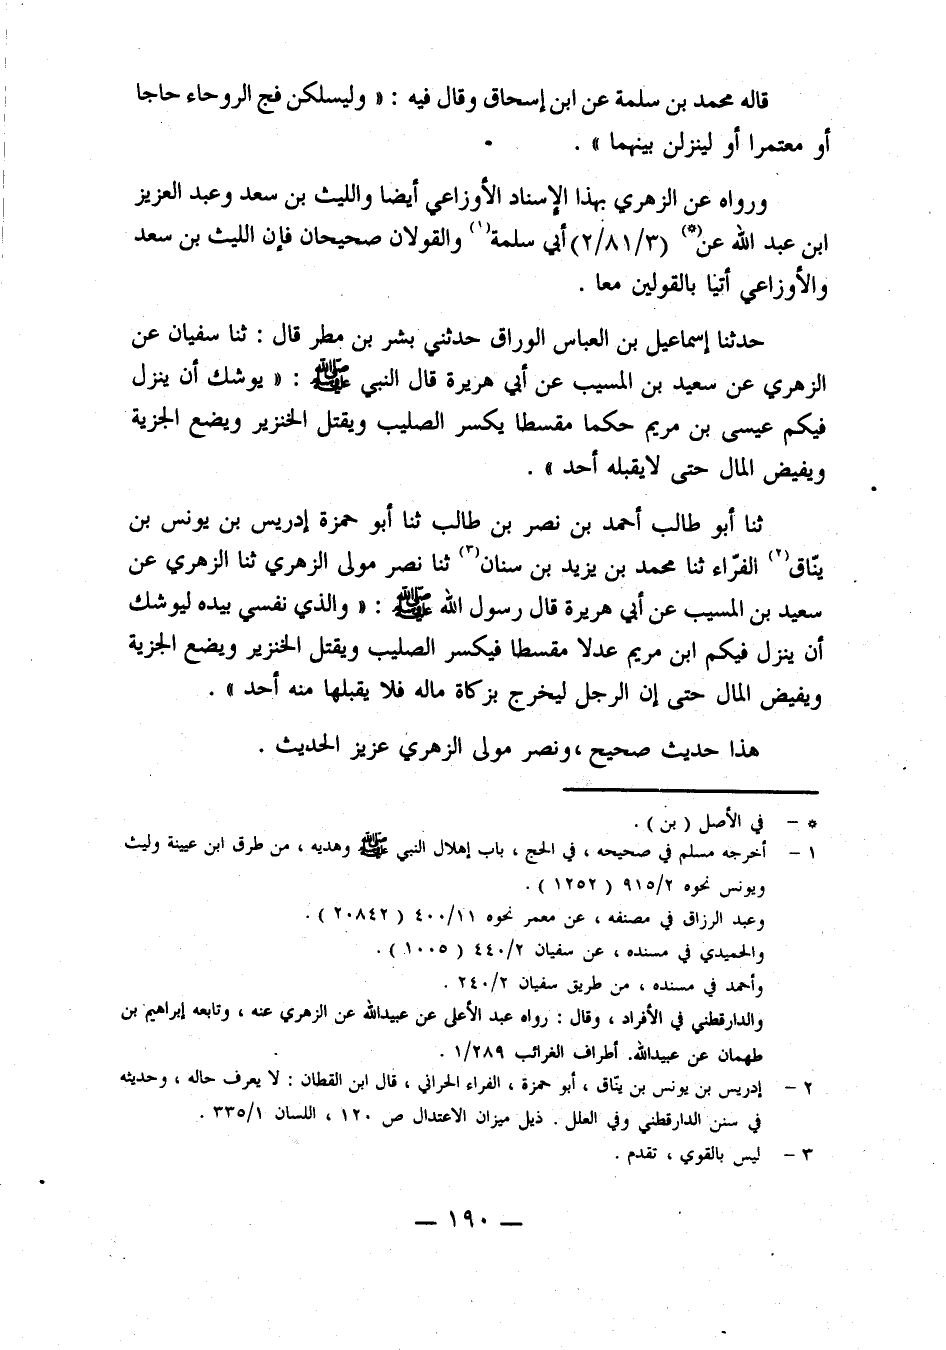 قاله محمد بن سلمة عن ابن إسحاق وقال فيه : « وليسلكن فج الروحاء حاجا
أو معتمرا أو لينزلن بينهما » .
ورواه عن الزهري بهذا الإسناد الأوزاعي أيضا والليث بن سعد وعبد العزيز
ابن عبد الله عن(*) (٢/٨١/٣) أبي سلمة(١) والقولان صحيحان فإن الليث بن سعد
والأوزاعي أتيا بالقولين معا .
حدثنا إسماعيل بن العباس الوراق حدثني بشر بن مطر قال : ثنا سفيان عن
الزهري عن سعيد بن المسيب عن أبي هريرة قال النبي ﷺ : « يوشك أن ينزل
فيكم عيسى بن مريم حكما مقسطا يكسر الصليب ويقتل الخنزير ويضع الجزية
ويفيض المال حتى لايقبله أحد » .
ثنا أبو طالب أحمد بن نصر بن طالب ثنا أبو حمزة إدريس بن يونس بن
ينّاق(٢) الفرّاء ثنا محمد بن يزيد بن سنان(٣) ثنا نصر مولى الزهري ثنا الزهري عن
سعيد بن المسيب عن أبي هريرة قال رسول الله ﷺ : « والذي نفسي بيده ليوشك
أن ينزل فيكم ابن مريم عدلا مقسطا فيكسر الصليب ويقتل الخنزير ويضع الجزية
ويفيض المال حتى إن الرجل ليخرج بزكاة ماله فلا يقبلها منه أحد » .
هذا حديث صحيح ، ونصر مولى الزهري عزيز الحديث .
* – في الأصل ( بن ) .
١ – أخرجه مسلم في صحيحه ، في الحج ، باب إهلال النبي ﷺ وهديه ، من طرق ابن عيينة وليث
ويونس نحوه ٩١٥/٢ ( ١٢٥٢ ) .
وعبد الرزاق في مصنفه ، عن معمر نحوه ٤٠٠/١١ ( ٢٠٨٤٢ ) .
والحميدي في مسنده ، عن سفيان ٤٤٠/٢ ( ١٠٠٥ ) .
وأحمد في مسنده ، من طريق سفيان ٢٤٠/٢ .
والدارقطني في الأفراد ، وقال : رواه عبد الأعلى عن عبيدالله عن الزهري عنه ، وتابعه إبراهيم بن
طهمان عن عبيدالله. أطراف الغرائب ١/٢٨٩ .
٢ – إدريس بن يونس بن ينّاق ، أبو حمزة ، الفراء الحراني ، قال ابن القطان : لا يعرف حاله ، وحديثه
في سنن الدارقطني وفي العلل . ذيل ميزان الاعتدال ص ١٢٠ ، اللسان ٣٣٥/١ .
٣ – ليس بالقوي ، تقدم .
— ١٩٠ —